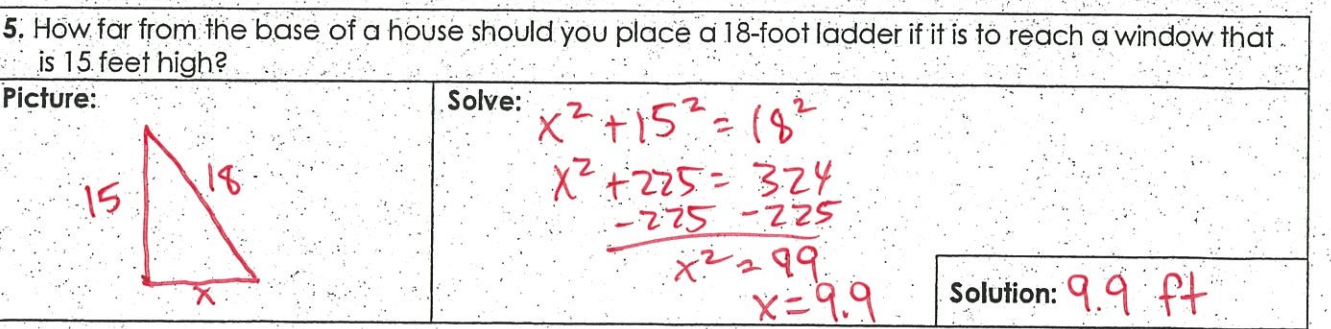 5. How far from the base of a house should you place a 18-foot ladder if it is to reach a window that
is 15 feet high?
Picture:
15
18
x
Solve:
x² + 15² = 18²
x² + 225 = 324
-225 -225
x² = 99
x = 9.9
Solution: 9.9 ft